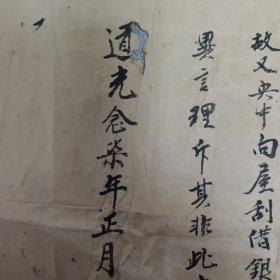 故又央中向屋刮借銀
異言理斥其非此
道光念柒年正月